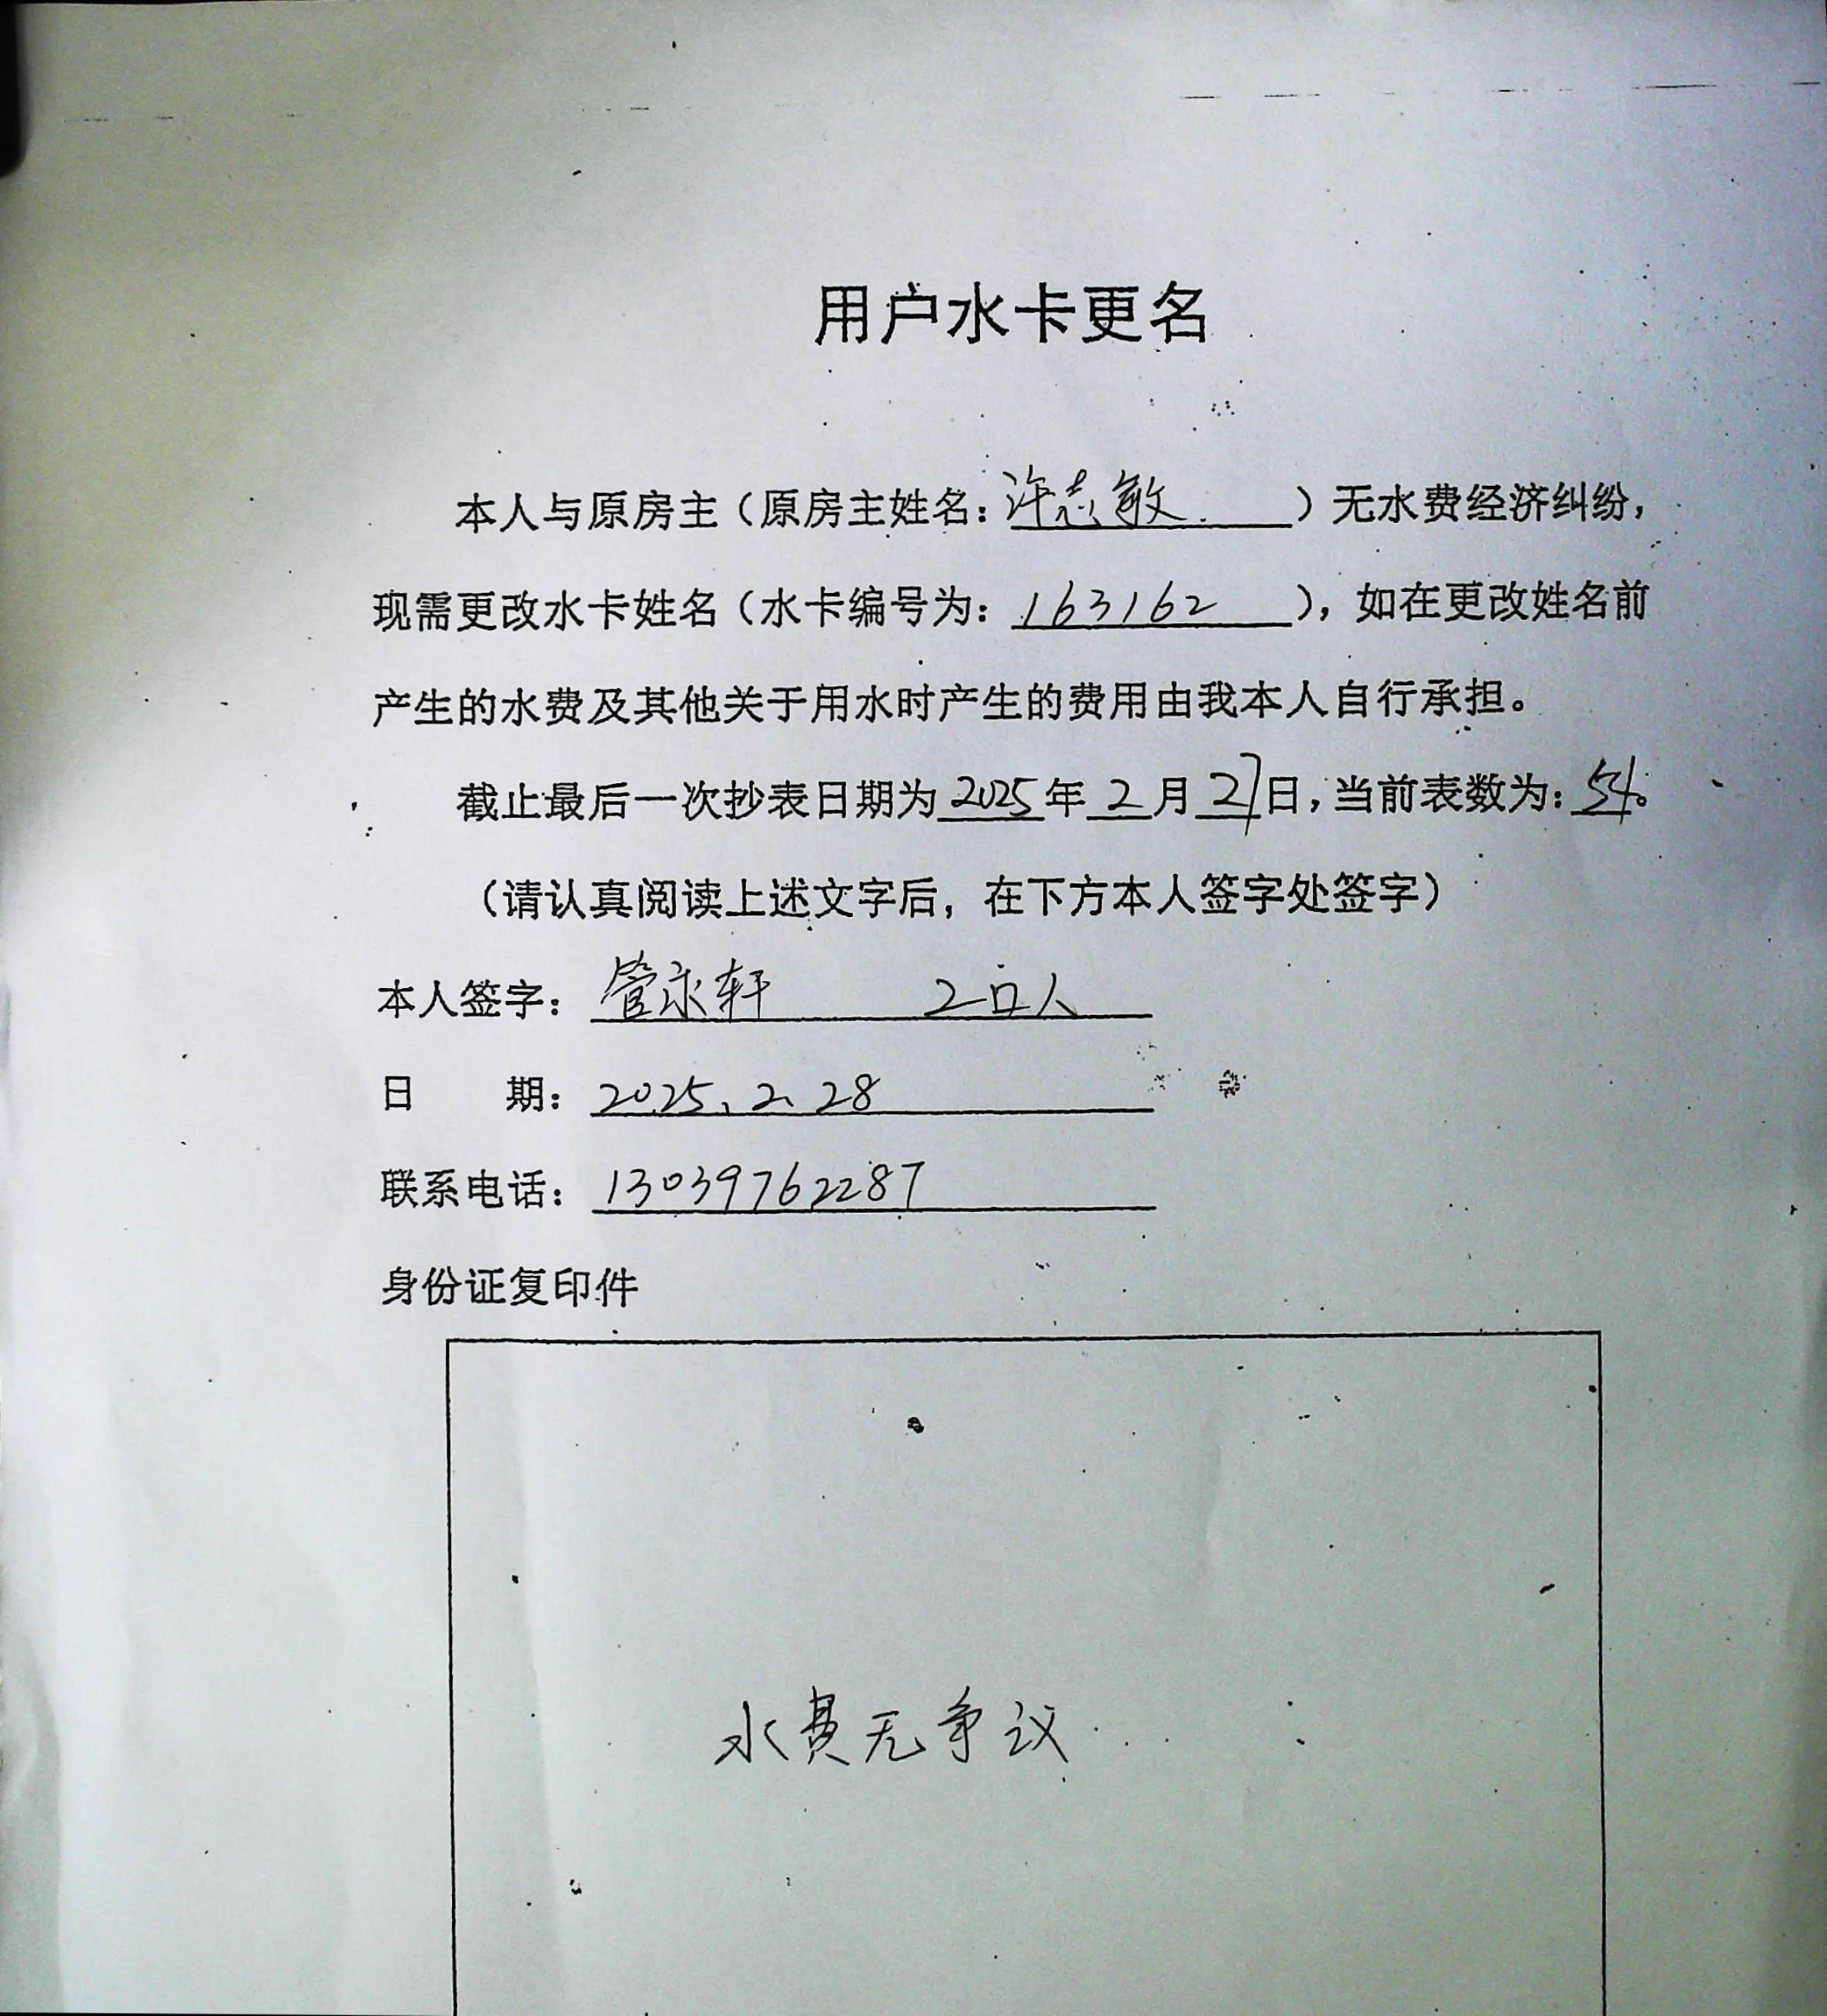 用户水卡更名
本人与原房主（原房主姓名：许志敏）无水费经济纠纷，
现需更改水卡姓名（水卡编号为：163162），如在更改姓名前
产生的水费及其他关于用水时产生的费用由我本人自行承担。
截止最后一次抄表日期为2025年2月27日，当前表数为：54。
（请认真阅读上述文字后，在下方本人签字处签字）
本人签字：管永轩 2口人
日期：2025、2、28
联系电话：13039762287
身份证复印件
水费无争议